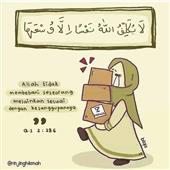 لَا يُكَلِّفُ اللَّهُ نَفْسًا إِلَّا وُسْعَهَا
Allah tidak
membebani seseorang
melainkan sesuai
dengan kesanggupannya
Q.S 2 : 286